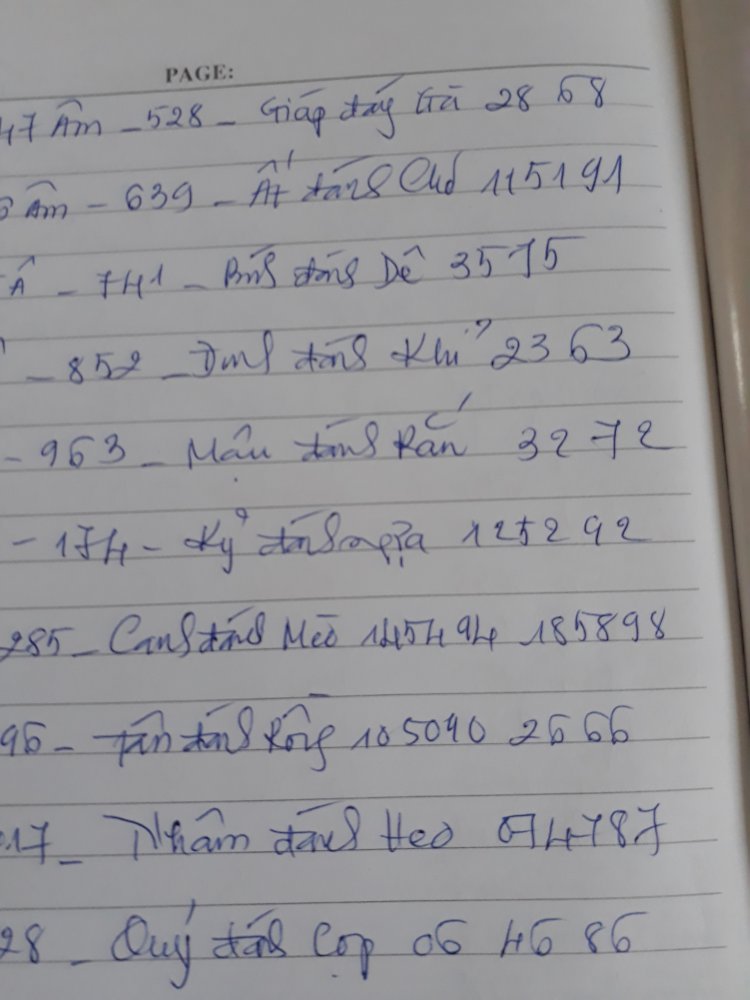 PAGE:
47 Âm - 528 - Giáp đáng Gà 28 68
Âm - 639 - Ất đáng Chó 115191
Â - 741 - Bính đáng Dê 3575
- 852 - Đinh đáng Khỉ 2363
- 963 - Mậu đáng Rắn 32 72
- 174 - Kỷ đáng ngựa 125292
285 - Canh đáng Mèo 145494 185898
96 - Tân đáng Rồng 105090 2666
17 - Nhâm đáng Heo 074787
28 - Quý đáng Cọp 06 46 86